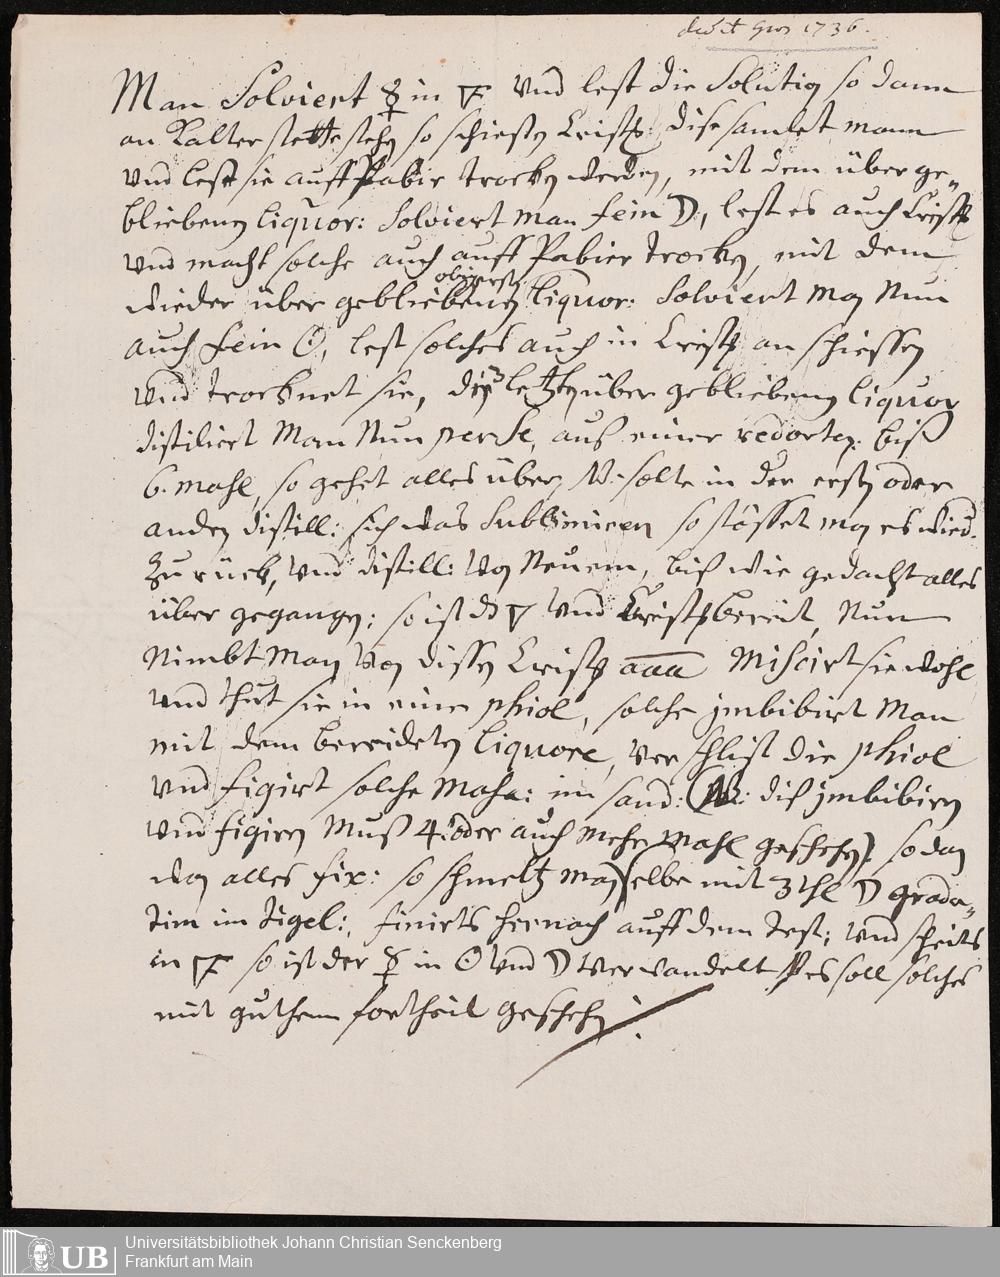 dedit Gros 1736.
Man Solviert ☿ in 🜅 Vnd lest die Solution so dann
an Kalter stette stehen so schießen Cristll: dise samlet mann
Vnd lest sie auff Pabir trocken werden, mit dem über ge-
bliebenen liquor: Solviert man fein ☽, lest es auch Cristll
Vnd macht solche auch auff Pabier trocken, mit dem
wieder über gebliebenen liquor: Solviert man Nun
auch fein ☉, lest solches auch in Cristll an schiessen
Vnd trocknet sie, letzten über gebliebenen liquor
distiliert Man Nun per se, auß einer redorten: biß
6. mahl, so gehet alles über, NB: solte in der ersten oder
anden distill: sich was Sublimiren so stösset man es wied.
Zu rück, Vnd distill: Von Neuem, biß wie gedacht alles
über gegangen; so ist Vnd Cristll bereit, Nun
Nimbt Man Von dissen Cristll aaa Miscirt sie wohl
Vnd thut sie in eine phiol, solche jmbibirt Man
mit dem bereideten liquore, Ver schlist die phiol
Vnd figirt solche Massa: im sand: (NB: diß jmbibiren
Vnd figiren Muß 4: oder auch mehr Mahl geschehen). so dan
wan alles fix: so schmeltz man selbe mit 3 thl ☽ grada-
tim im Tigel:, finirts hernach auff dem Test; Vnd scheits
in 🜅 so ist der ☿ in ☉ Vnd ☽ Verwandelt es soll solches
mit guthem fortheil geschehen
UB
Universitätsbibliothek Johann Christian Senckenberg
Frankfurt am Main